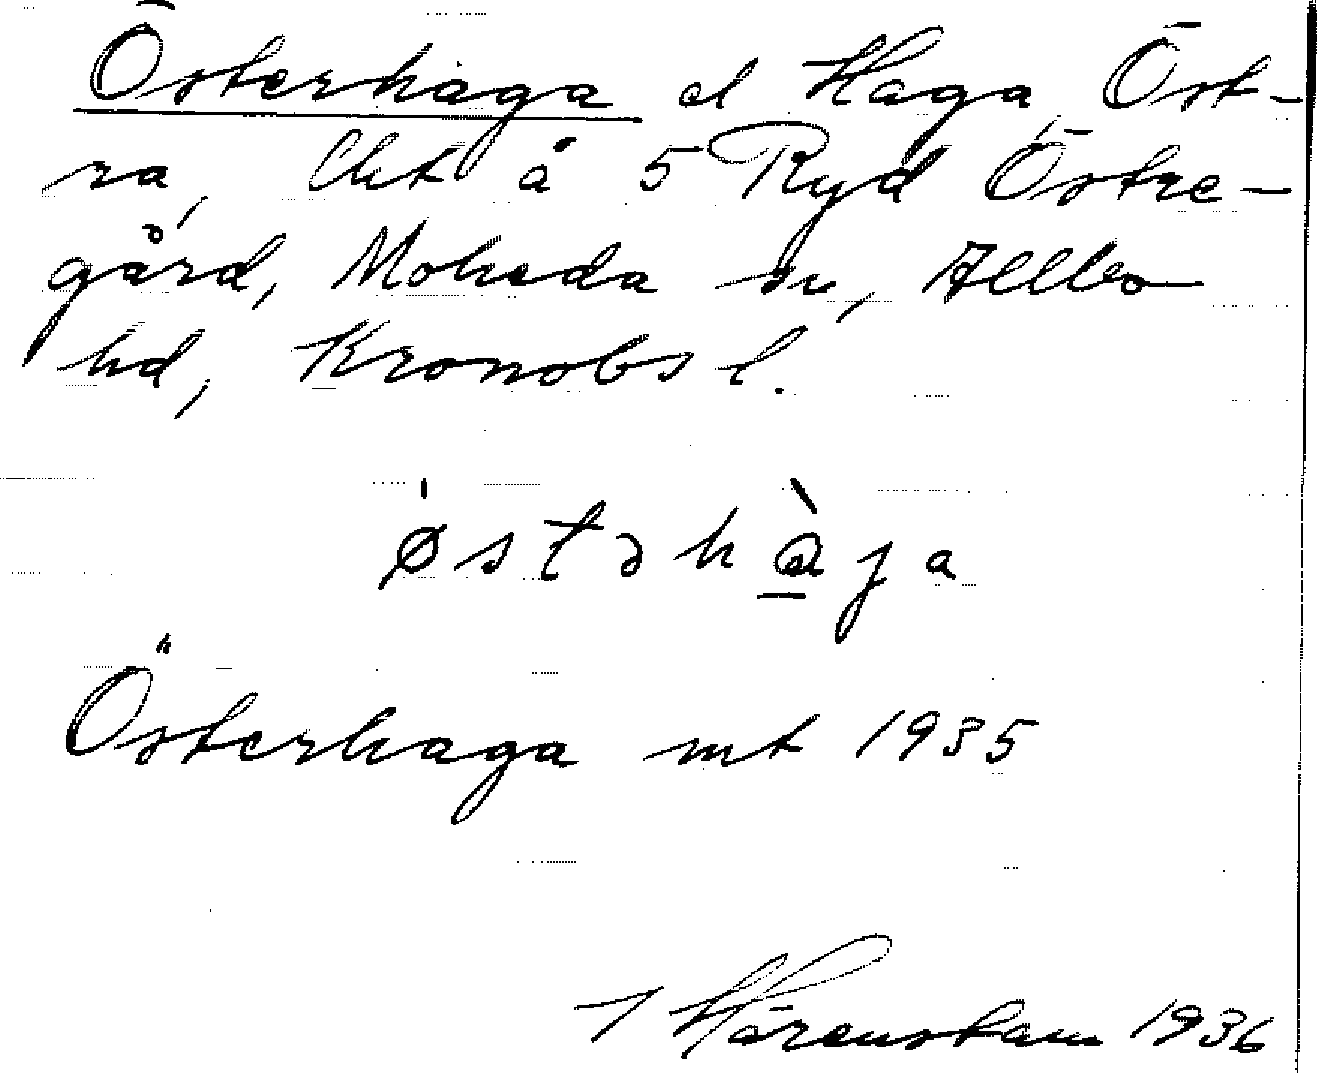 Österhaga el Haga Öst-
ra, lht å 5 Ryd Östre-
gård, Moheda sn, Allbo
hd, Kronobs l.
østəhaja
Österhaga mt 1935
Härenstam 1936